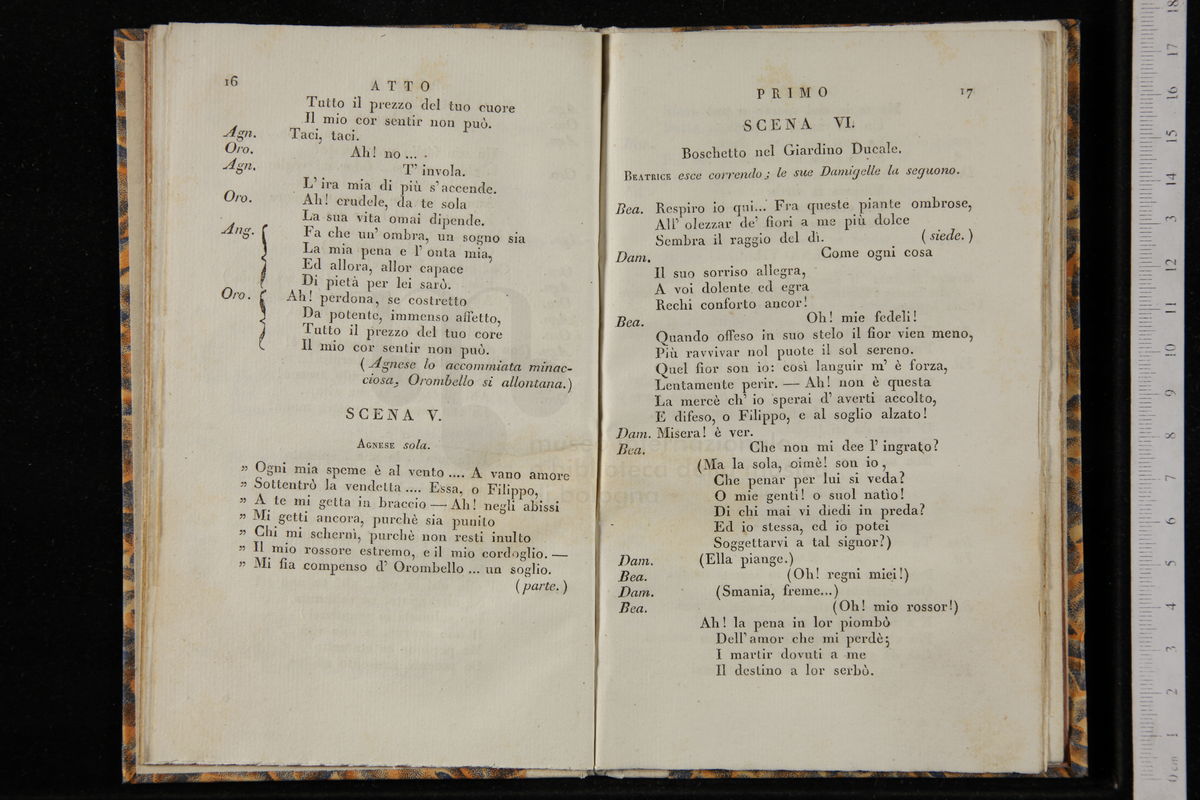 16
ATTO
Tutto il prezzo del tuo cuore
Il mio cor sentir non può.
Agn. Taci, taci.
Oro. Ah! no ... .
Agn. T' invola.
L' ira mia di più s' accende.
Oro. Ah! crudele, da te sola
La sua vita omai dipende.
Ang. Fa che un' ombra, un sogno sia
La mia pena e l' onta mia,
Ed allora, allor capace
Di pietà per lei sarò.
Oro. Ah! perdona, se costretto
Da potente, immenso affetto,
Tutto il prezzo del tuo core
Il mio cor sentir non può.
(Agnese lo accommiata minac-
ciosa, Orombello si allontana.)
SCENA V.
AGNESE sola.
„ Ogni mia speme è al vento .... A vano amore
„ Sottentrò la vendetta .... Essa, o Filippo,
„ A te mi getta in braccio — Ah! negli abissi
„ Mi getti ancora, purchè sia punito
„ Chi mi schernì, purchè non resti inulto
„ Il mio rossore estremo, e il mio cordoglio. —
„ Mi fia compenso d' Orombello ... un soglio.
(parte.)
PRIMO
17
SCENA VI.
Boschetto nel Giardino Ducale.
BEATRICE esce correndo; le sue Damigelle la seguono.
Bea. Respiro io qui... Fra queste piante ombrose,
All' olezzar de' fiori a me più dolce
Sembra il raggio del dì. (siede.)
Dam. Come ogni cosa
Il suo sorriso allegra,
A voi dolente ed egra
Rechi conforto ancor!
Bea. Oh! mie fedeli!
Quando offeso in suo stelo il fior vien meno,
Più ravvivar nol puote il sol sereno.
Quel fior son io: così languir m' è forza,
Lentamente perir. — Ah! non è questa
La mercè ch' io sperai d' averti accolto,
E difeso, o Filippo, e al soglio alzato!
Dam. Misera! è ver.
Bea. Che non mi dee l' ingrato?
(Ma la sola, oimè! son io,
Che penar per lui si veda?
O mie genti! o suol natìo!
Di chi mai vi diedi in preda?
Ed io stessa, ed io potei
Soggettarvi a tal signor?)
Dam. (Ella piange.)
Bea. (Oh! regni miei!)
Dam. (Smania, freme...)
Bea. (Oh! mio rossor!)
Ah! la pena in lor piombò
Dell' amor che mi perdè;
I martir dovuti a me
Il destino a lor serbò.
0 cm 1 2 3 4 5 6 7 8 9 10 11 12 13 14 15 16 17 18